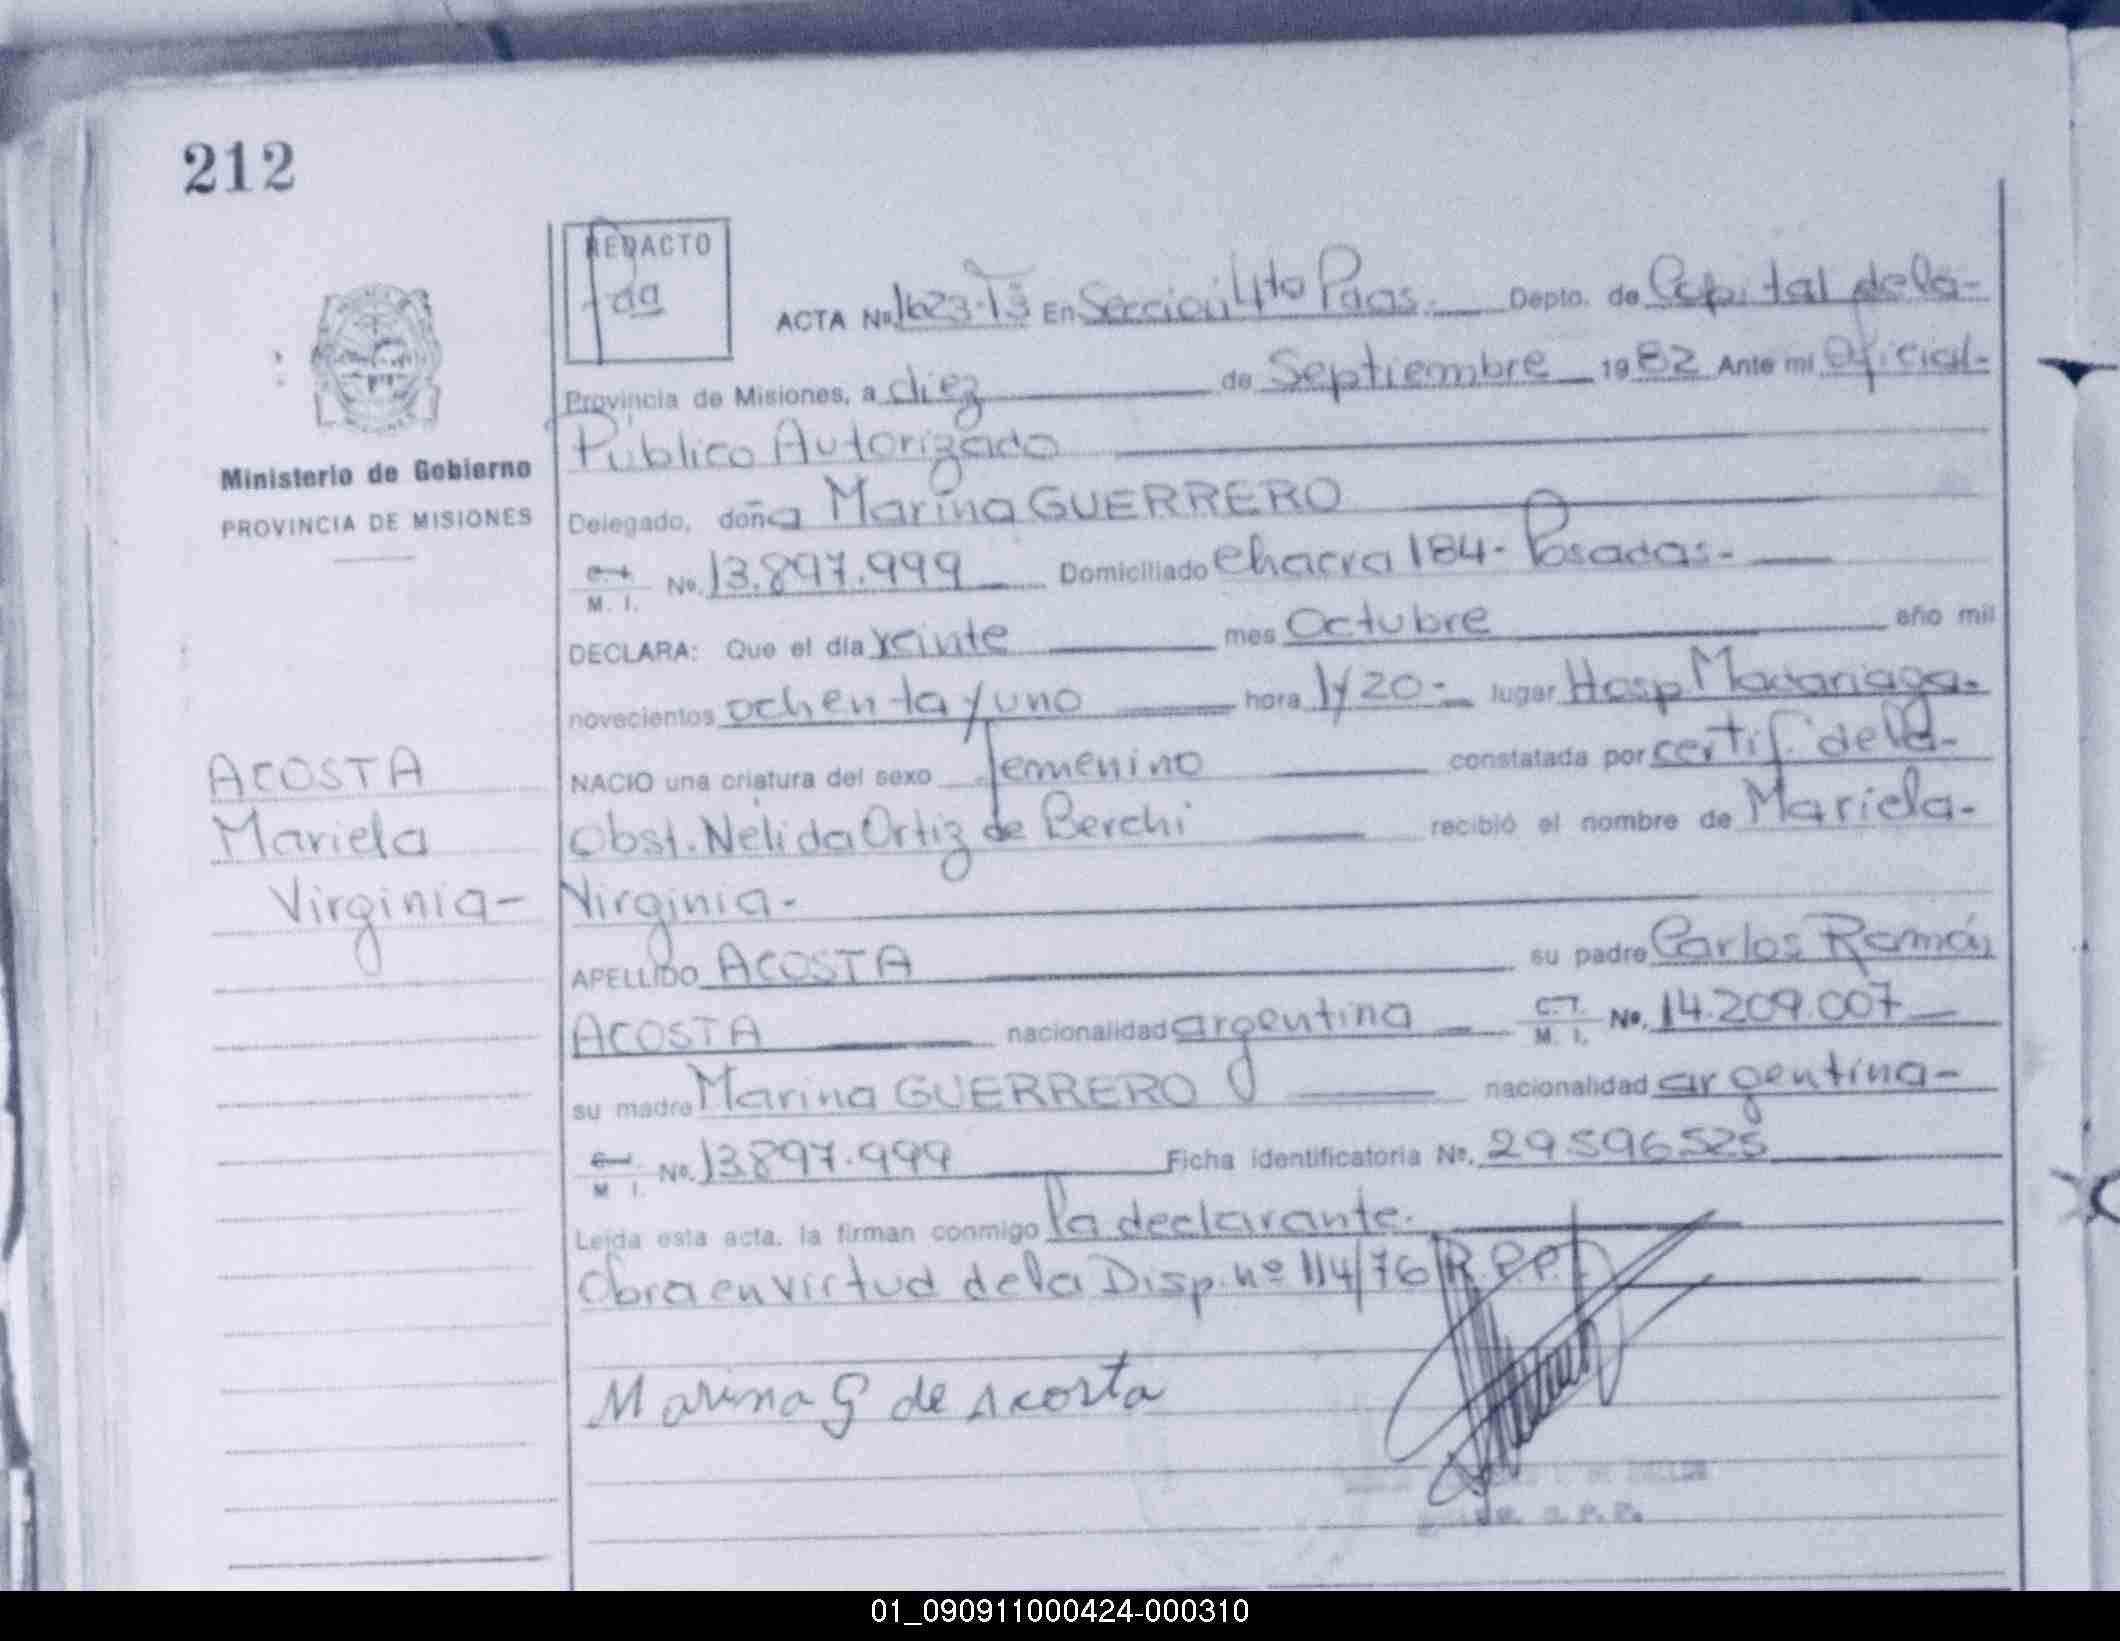 212
REDACTO
ACTA No. 1623-T3 En Sección 4to Pdas. Depto. de Capital de la-
Provincia de Misiones, a diez de Septiembre 1982 Ante mi Oficial-
Público Autorizado
Ministerio de Gobierno
PROVINCIA DE MISIONES
Delegado, doña Marina GUERRERO
M. I. No. 13.897.999 Domiciliado Chacra 184- Posadas-
DECLARA: Que el día veinte mes Octubre año mil
novecientos ochenta y uno hora 1y20- lugar Hosp Madariaga-
ACOSTA
Mariela
Virginia-
NACIO una criatura del sexo femenino constatada por certif. de la-
Obst. Nelida Ortiz de Berchi recibió el nombre de Mariela-
Virginia-
APELLIDO ACOSTA su padre Carlos Ramón
ACOSTA nacionalidad argentina C.I. M. I. No. 14.209.007
su madre Marina GUERRERO nacionalidad argentina-
M I. No. 13897.999 Ficha identificatoria No. 29596525
Leida esta acta, la firman conmigo la declarante.
Obra en virtud de la Disp. nº 114/76 R.P.P.
Marina G de Acosta
01_090911000424-000310